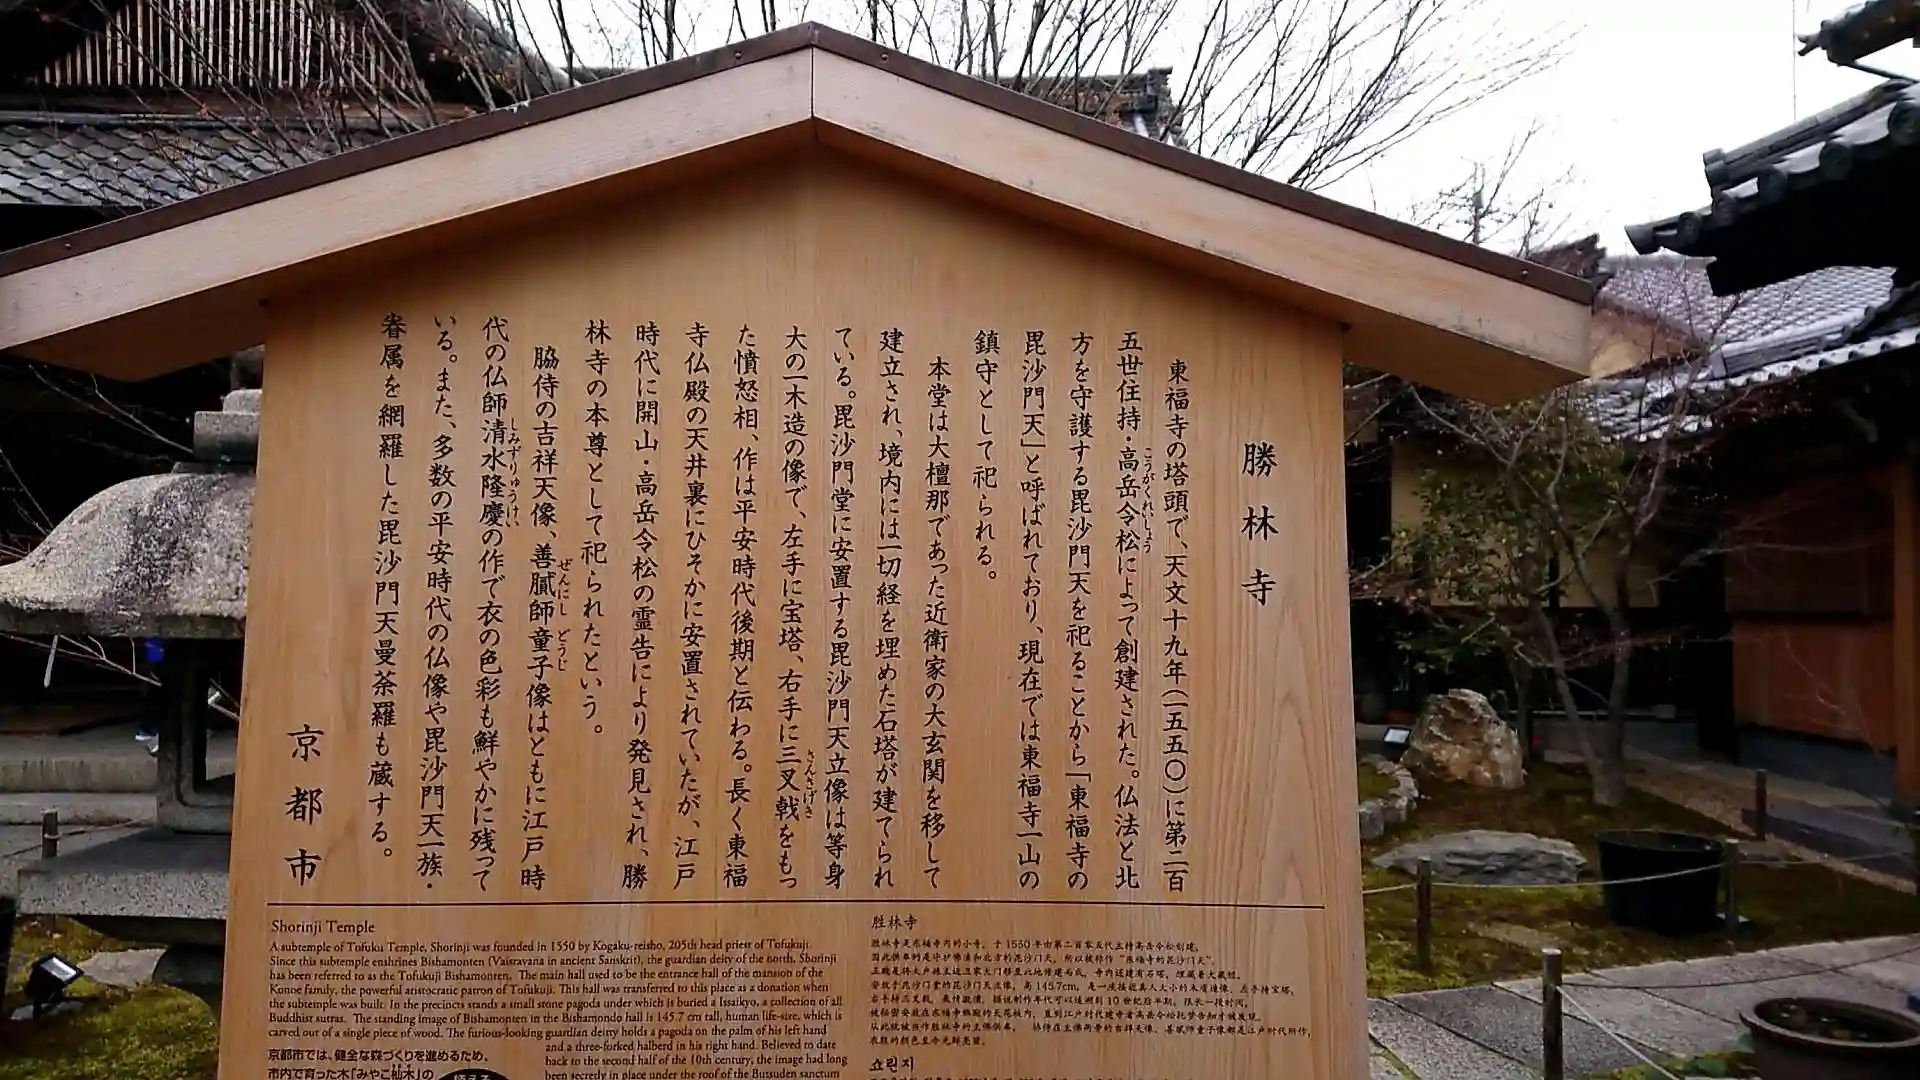 勝林寺
東福寺の塔頭で、天文十九年(一五五〇)に第二百
五世住持・高岳令松によって創建された。仏法と北
こうがくれいしょう
方を守護する毘沙門天を祀ることから「東福寺の
毘沙門天」と呼ばれており、現在では東福寺一山の
鎮守として祀られる。
本堂は大檀那であった近衛家の大玄関を移して
建立され、境内には一切経を埋めた石塔が建てられ
ている。毘沙門堂に安置する毘沙門天立像は等身
大の一木造の像で、左手に宝塔、右手に三叉戟をもっ
さんさげき
た憤怒相、作は平安時代後期と伝わる。長く東福
寺仏殿の天井裏にひそかに安置されていたが、江戸
時代に開山・高岳令松の霊告により発見され、勝
林寺の本尊として祀られたという。
脇侍の吉祥天像、善膩師童子像はともに江戸時
ぜんにし どうじ
代の仏師清水隆慶の作で衣の色彩も鮮やかに残って
しみずりゅうけい
いる。また、多数の平安時代の仏像や毘沙門天一族・
眷属を網羅した毘沙門天曼荼羅も蔵する。
京都市
Shorinji Temple
A subtemple of Tofuku Temple, Shorinji was founded in 1550 by Kogaku-reisho, 205th head priest of Tofukuji.
Since this subtemple enshrines Bishamonten (Vaisravana in ancient Sanskrit), the guardian deity of the north, Shorinji
has been referred to as the Tofukuji Bishamonten. The main hall used to be the entrance hall of the mansion of the
Konoe family, the powerful aristocratic patron of Tofukuji. This hall was transferred to this place as a donation when
the subtemple was built. In the precincts stands a small stone pagoda under which is buried a Issaikyo, a collection of all
Buddhist sutras. The standing image of Bishamonten in the Bishamondo hall is 145.7 cm tall, human life-size, which is
carved out of a single piece of wood. The furious-looking guardian deity holds a pagoda on the palm of his left hand
and a three-forked halberd in his right hand. Believed to date
back to the second half of the 10th century, the image had long
been secretly in place under the roof of the Butsuden sanctum
京都市では、健全な森づくりを進めるため、
市内で育った木「みやこ杣木」の
胜林寺
胜林寺是东福寺内的小寺，于1550年由第二百零五代主持高岳令松创建。
因此供奉的是守护佛法和北方的毘沙门天，所以被称作“东福寺的毘沙门天”。
쇼린지